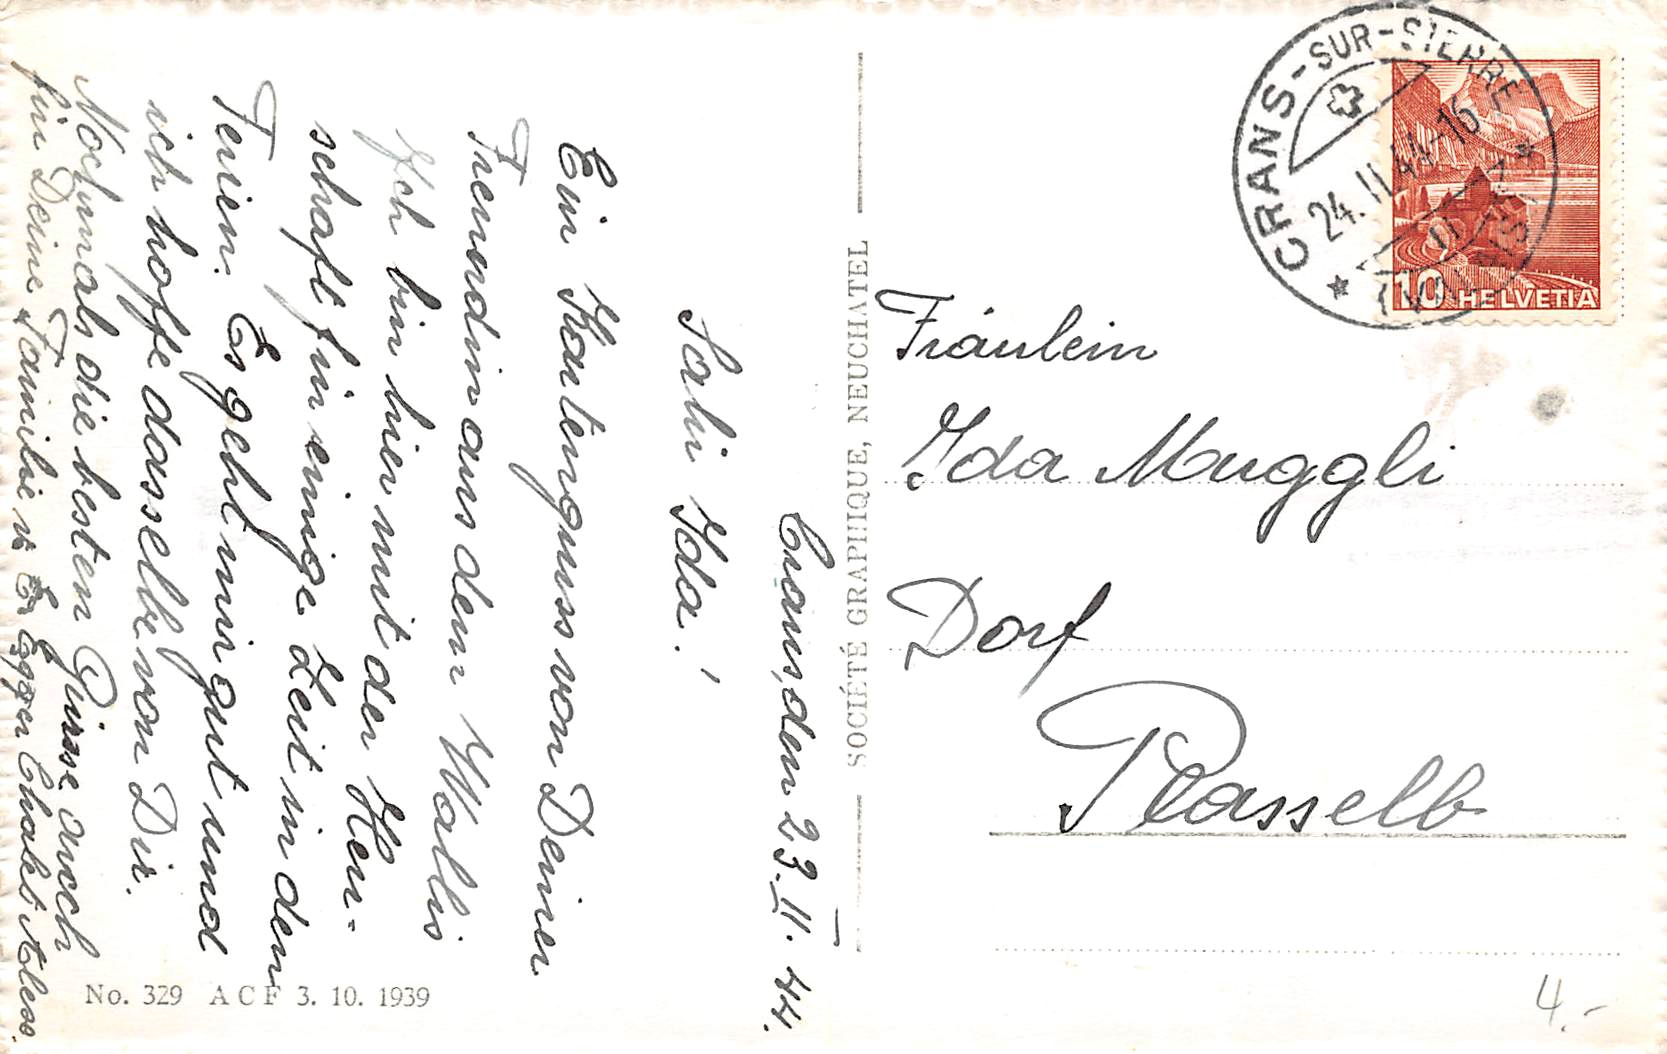 Crans, den 23. II. 44.
Sali Ida!
Ein Kartengruss von Deiner
Freundin aus dem Wallis
Ich bin hier mit der Her-
schaft für einige Zeit in den
Ferien. Es geht mir gut und
ich hoffe dasselbe von Dir.
Nochmals die besten Grüsse auch
für Deine Familie v. E. Egger Chalet
No. 329 A C F 3. 10. 1939
SOCIÉTÉ GRAPHIQUE, NEUCHATEL
CRANS-SUR-SIERRE
24. II 44-16
(VALAIS)
10 HELVETIA
Fräulein
Ida Muggli
Dorf
Plasselb
4.-